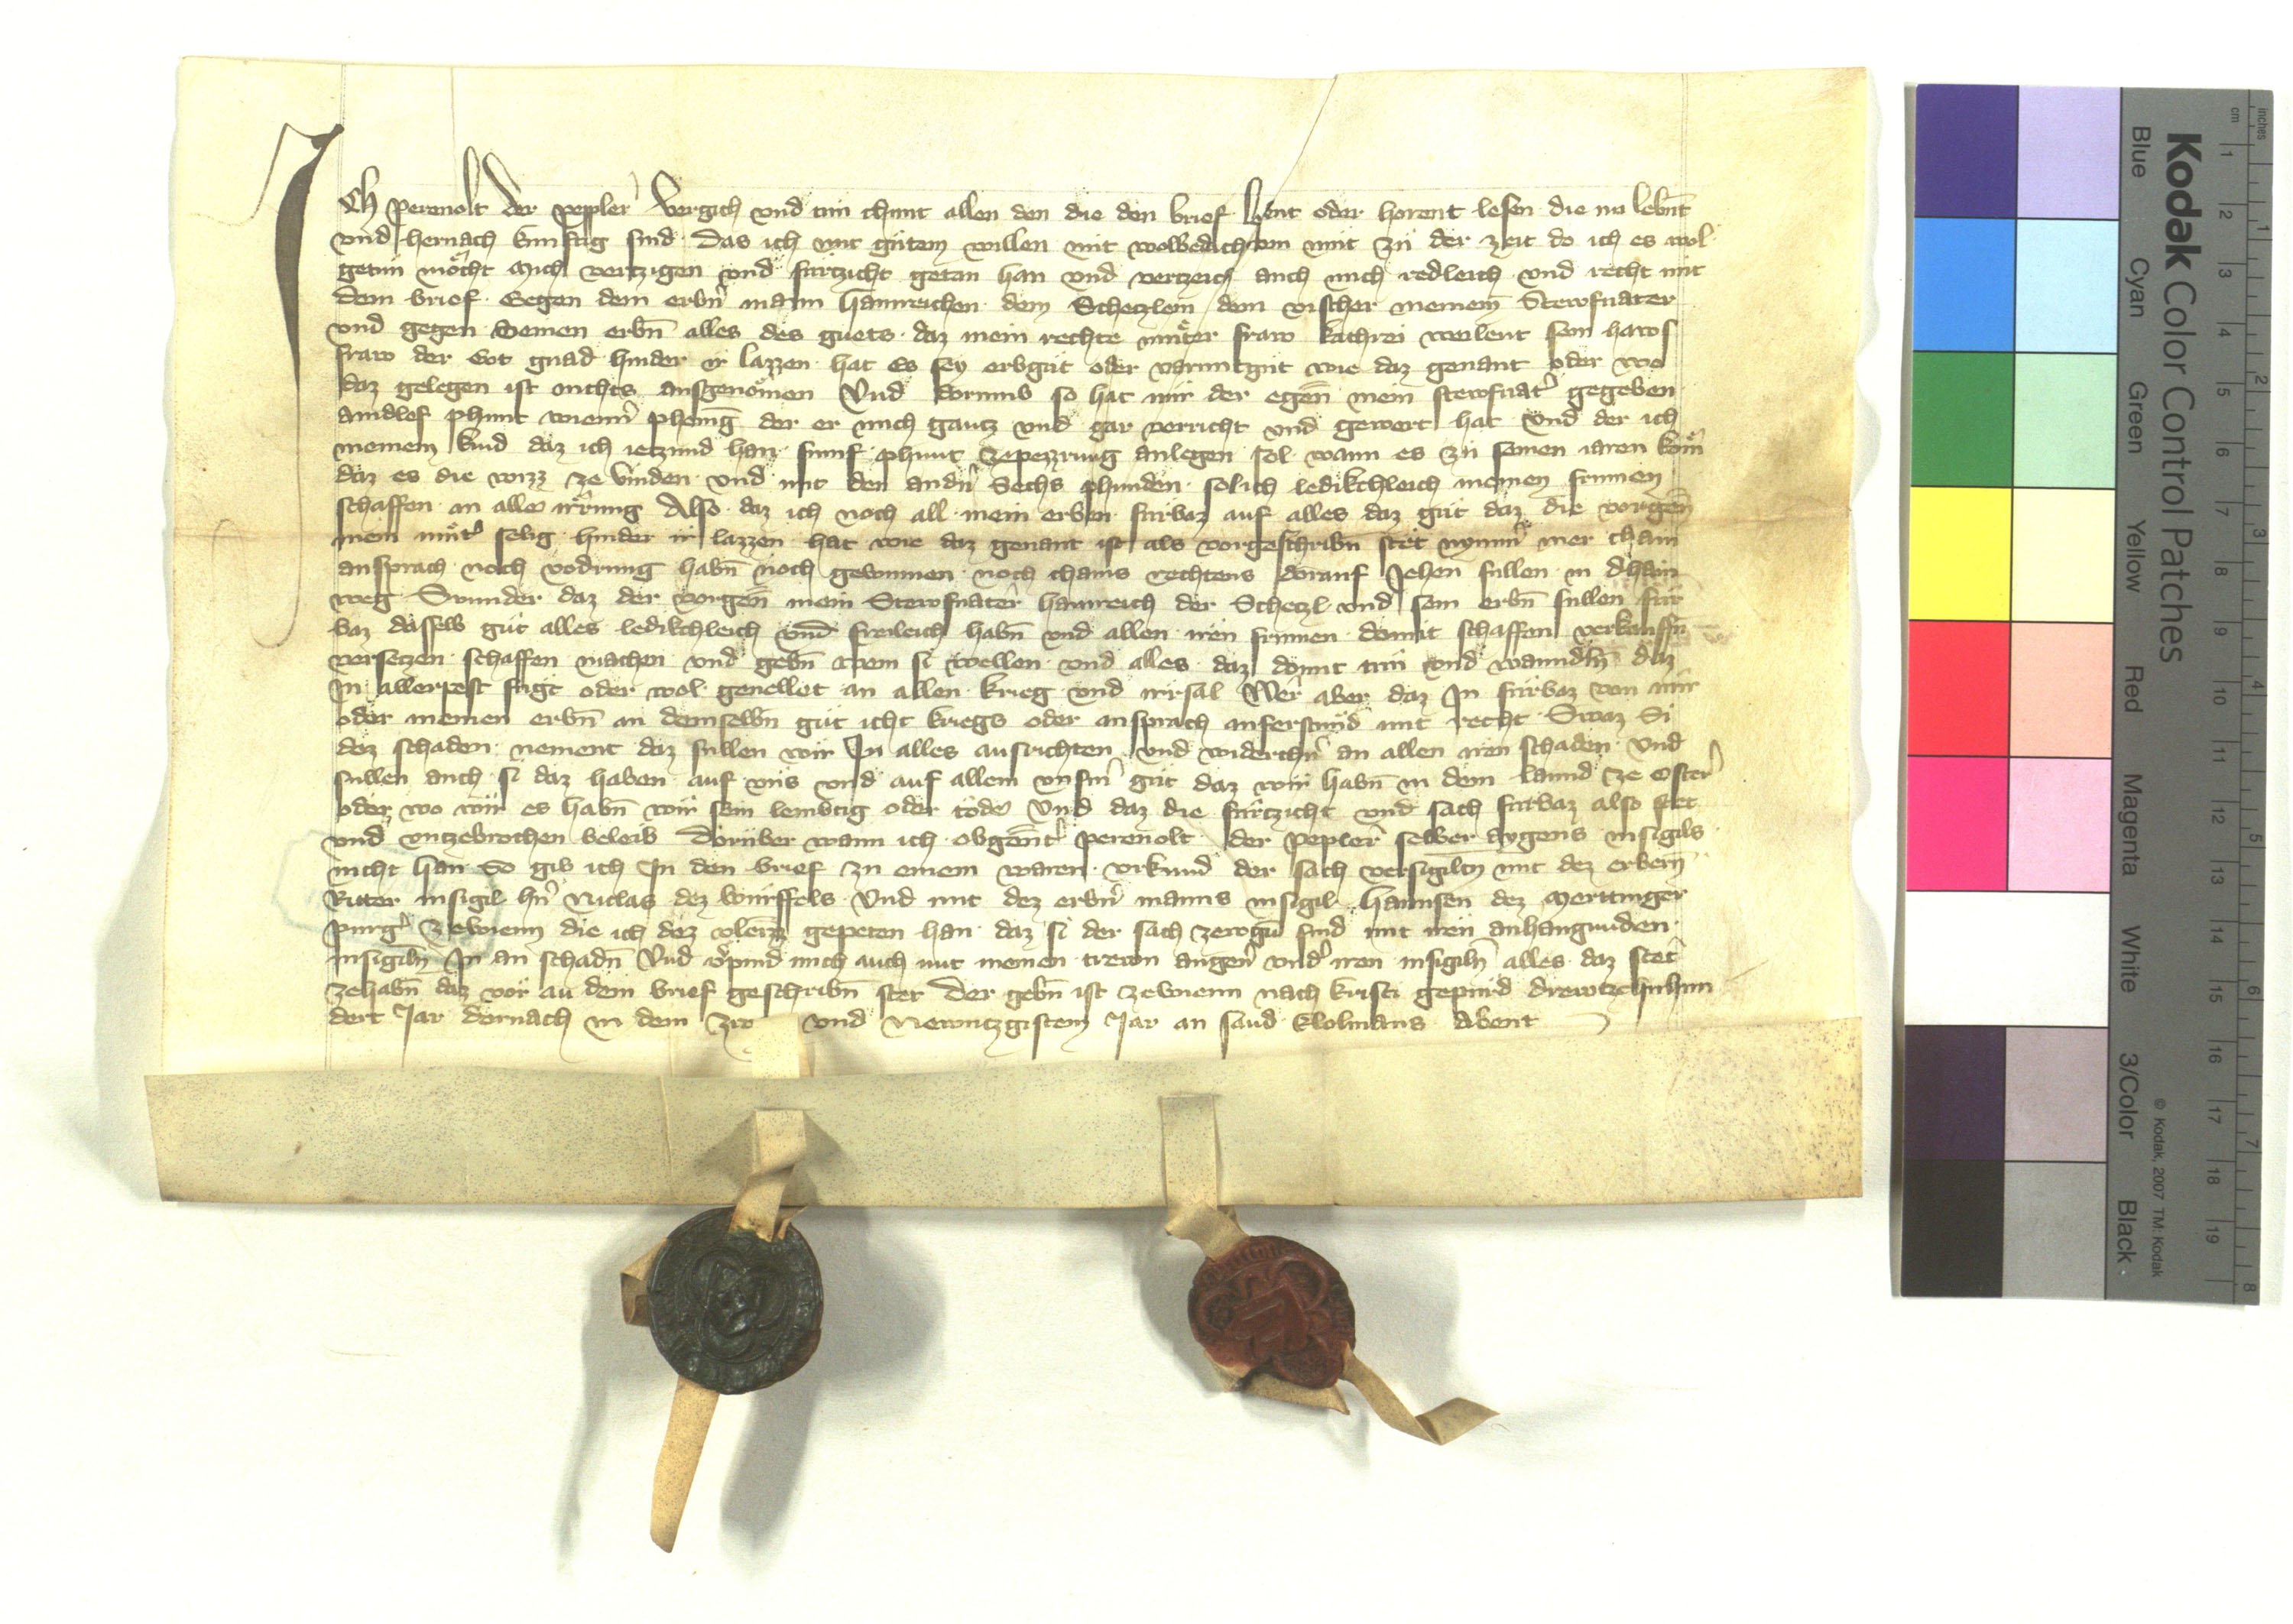 Ich Perenolt der Peppler Vergich vnd tun chunt allen den die den brief lesent oder horent lesen die nu lebnt
vnd hernach kunftig sind Das ich mit gutem willen mit wolbedachtem mut zu der zeit do ich es wol
getun möcht mich vertzigen vnd fürtzicht getan han vnd vertzeich auch mich redleich vnd recht mit
dem brief Gegen dem erbn mann Hainreichen dem Schetzlein dem vischer meinem Stewfuater
vnd gegen Seinen erbn alles des guets daz mein rechte muter fraw Kathrei weilent sein haws
fraw der Got gnad hinder ir lazzen hat Es sey erbgut oder varuntgut wie daz genant oder wo
daz gelegen ist nichts ausgenomen Vnd dorumb so hat mir der egen mein stewfuatr gegeben
aindlef phunt wienner phening der er mich gantz vnd gar verricht vnd gewert hat Vnd der ich
meinem kind daz ich ietzund han fumf phunt zepezzrung anlegen sol wann es zu seinen iaren kom
daz es die wizz ze vinden vnd mit den andn Sechs phunden sol ich ledikchleich meinen frumen
schaffen an alle irrung Also daz ich noch all mein erben fürbaz auf alles daz gut daz die vorgen
mein mutr selig hinder ir lazzen hat wie daz genant ist als vorgeschribn stet nymmer mer chain
ansprach noch vodrung habn noch gewinnen noch chains rechtens dorauf Jehen sullen in dhain
weg Svnder daz der vorgen mein Stewfuater Hainreich der Schetzl vnd sein erbn sullen für
baz dasselb gut alles ledikchleich vnd freileich habn vnd allen iren frumen domit schaffen verkauffn
versetzen schaffen machen vnd gebn wem si wellen vnd alles daz domit tun vnd wanndln daz
In allerpest fugt oder wol geuellet an allen krieg vnd irrsal Wer aber daz In fürbaz von mir
oder meinen erbn an demselbn gut icht kriegs oder ansprach auferstund mit recht Swaz Si
dez schaden nement daz sullen wir In alles ausrichten vnd widerchern an allen iren schaden Vnd
sullen auch si daz haben auf vns vnd auf allem vnserm gut daz wir habn in dem lannd ze Osterr
oder wo wir es habn wir sein lembtig oder tode Vnd daz die fürtzicht vnd sach fürbaz also stet
vnd vntzebrochen beleib Dorüber wann ich obgentr Perenolt der Pepler selber aygens insigils
nicht han So gib ich In den brief zu einem waren vrkund der sach versigilten mit dez erbern
Ritter insigil hern Niclas dez Würffels Vnd mit dez erbern manns insigil Hannsen dez Merttinger
purgr zewienn die ich dez vleizz gepeten han daz si der sach zewgn sind mit iren anhangunden
insigiln In an schadn Vnd verpind mich auch mit meinen trewn angeuer vnder iren insigiln alles daz stet
zehabn daz vor an dem brief geschribn stet Der gebn ist zewienn nach kristi gepurd drewtzehnhun
dert Jar dornach in dem zwo vnd Newntzgistem Jar an sand Kolmans Abent
Kodak Color Control Patches
Blue Cyan Green Yellow Red Magenta White 3/Color Black
© Kodak, 2007 TM: Kodak
inches 1 2 3 4 5 6 7 8
cm 1 2 3 4 5 6 7 8 9 10 11 12 13 14 15 16 17 18 19